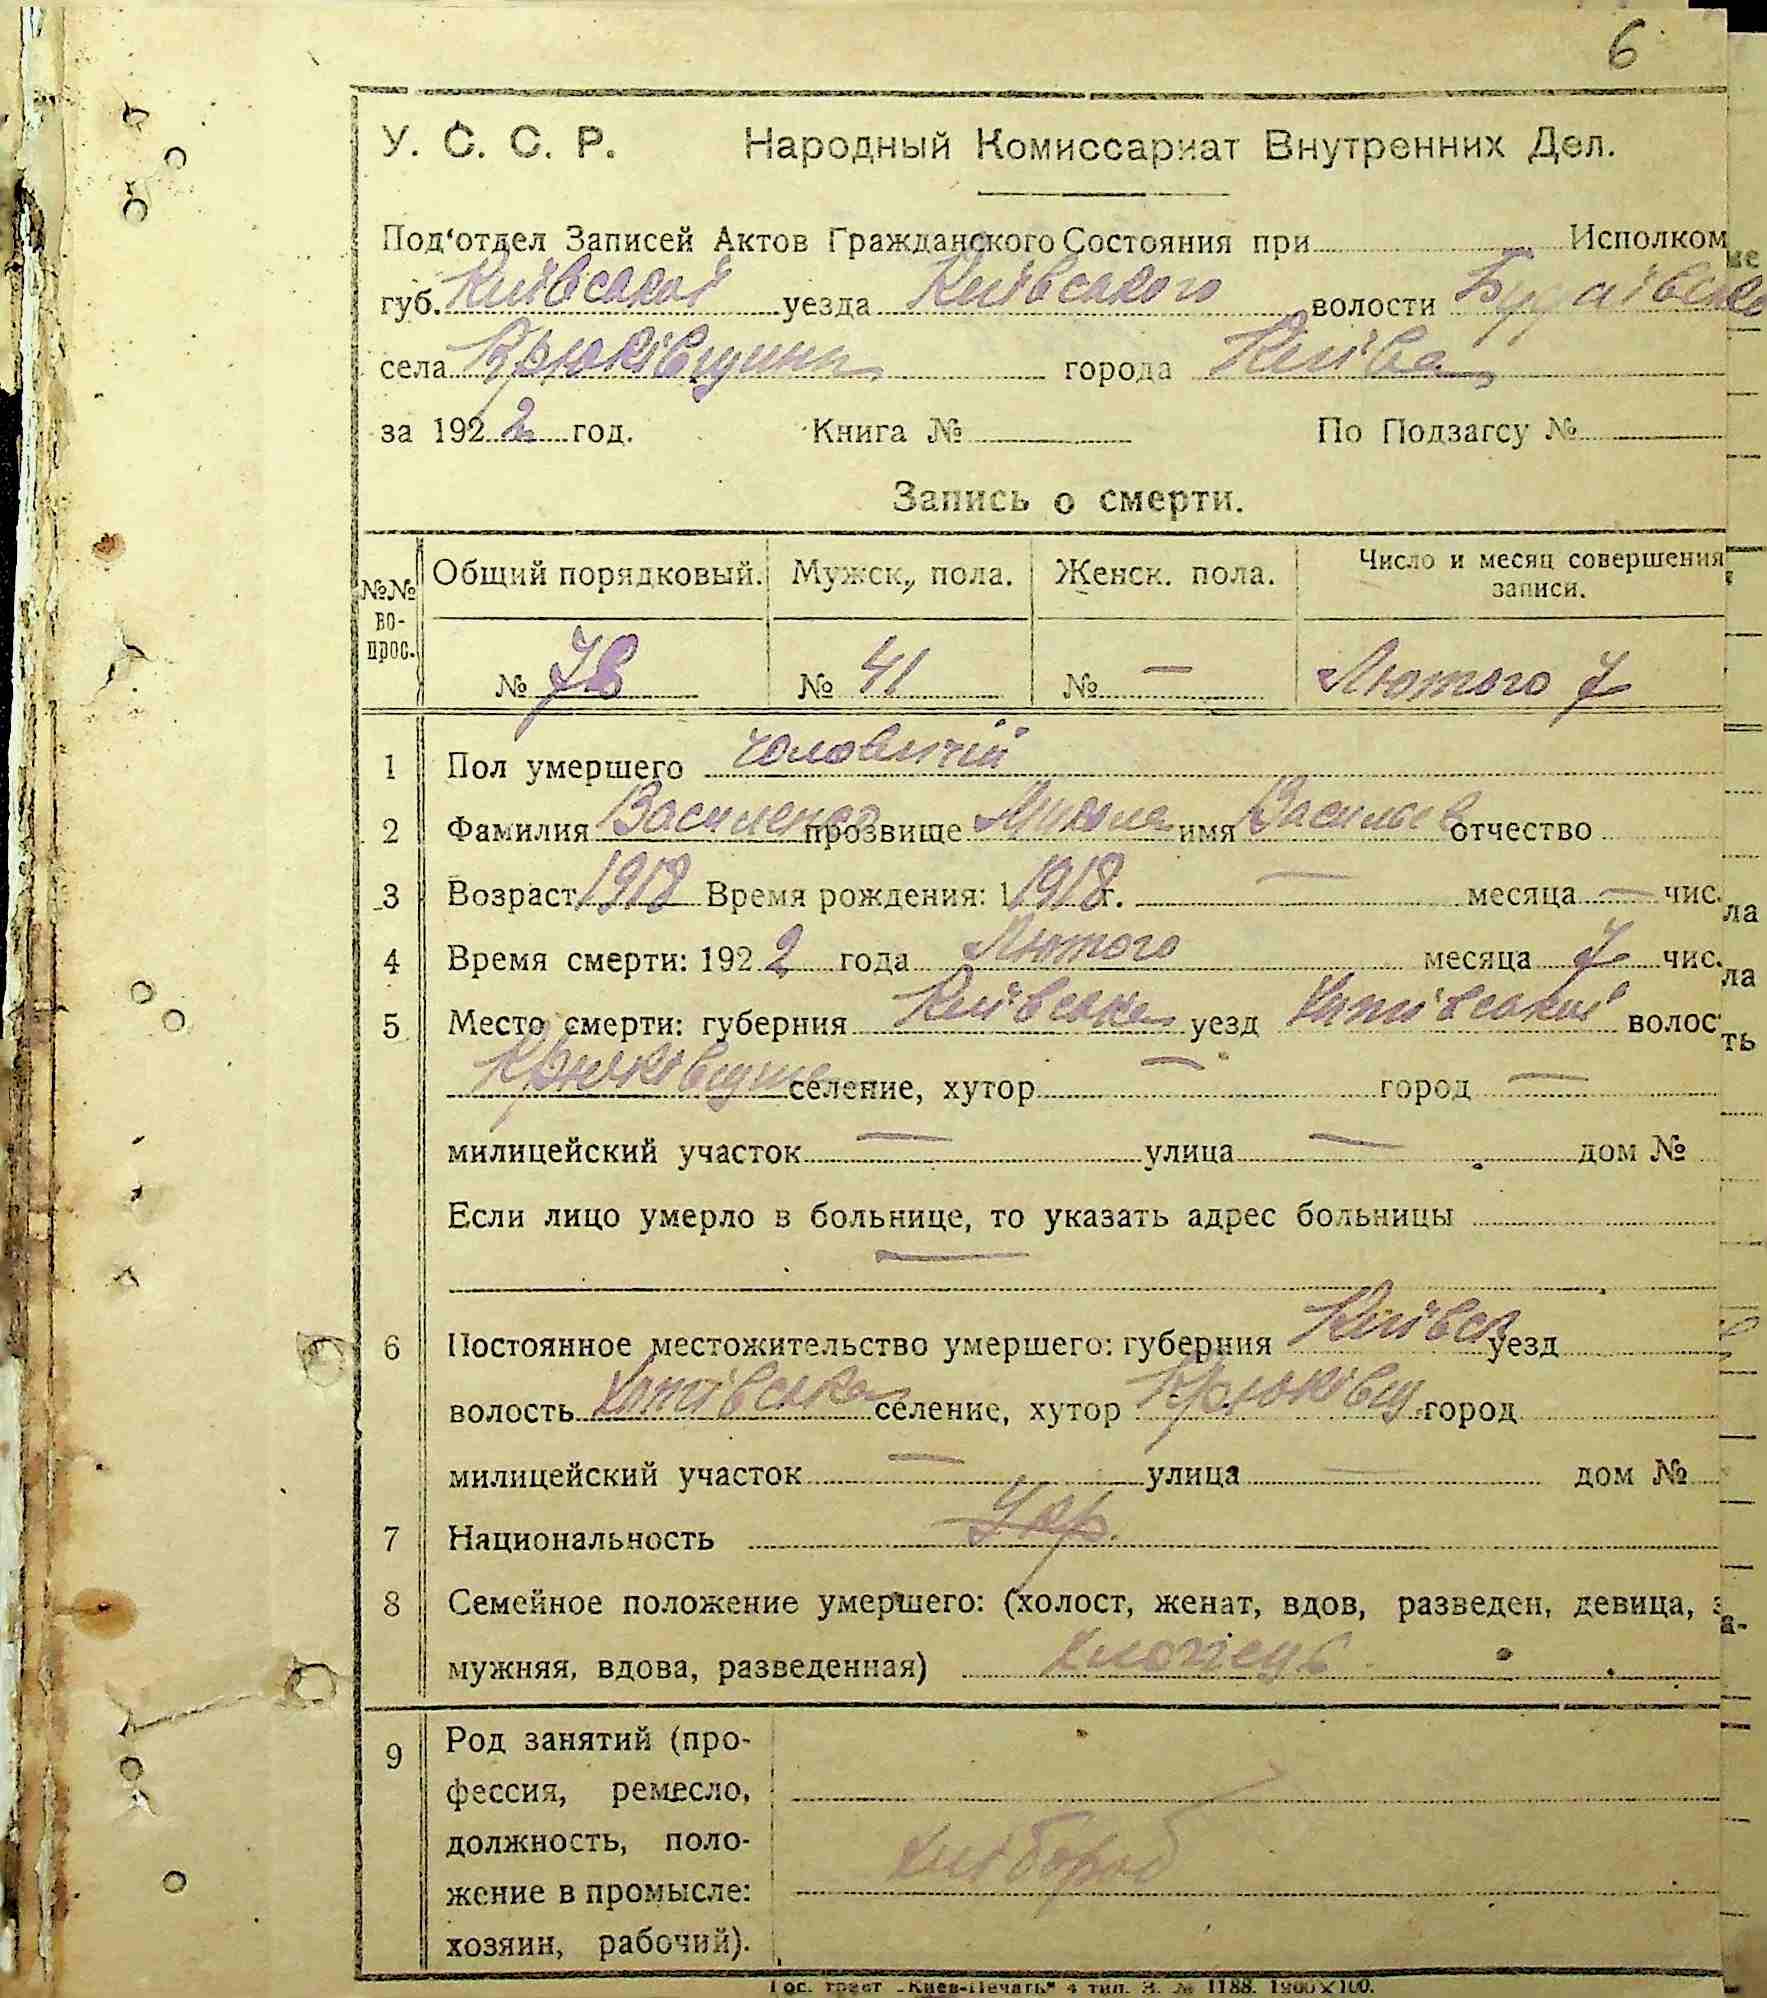 6
У. С. С. Р. Народный Комиссариат Внутренних Дел.
Под'отдел Записей Актов Гражданского Состояния при Исполком
губ. Київської уезда Київського волости Будаївсько
села Крюківщини города Київа
за 1922 год. Книга № По Подзагсу №
Запись о смерти.
№№ вопрос. Общий порядковый. Мужск. пола. Женск. пола. Число и месяц совершения записи.
№ 78 № 41 № — Лютого 7
1 Пол умершего чоловичий
2 Фамилия Василенко прозвище Микола имя Васильев отчество
3 Возраст 1918 Время рождения: 1 1918 г. — месяца — чис.
ла
4 Время смерти: 192 2 года Лютого месяца 7 чис.
ла
5 Место смерти: губерния Київська уезд Хотівської волос
ть
Крюківщина селение, хутор — город —
милицейский участок — улица — дом №
Если лицо умерло в больнице, то указать адрес больницы
—
6 Постоянное местожительство умершего: губерния Київск уезд
волость Хотівська селение, хутор Крюківщ. город
милицейский участок — улица — дом №
7 Национальность Укр.
8 Семейное положение умершего: (холост, женат, вдов, разведен, девица, за-
мужняя, вдова, разведенная) хлопець
9 Род занятий (про-
фессия, ремесло,
должность, поло- хлібороб
жение в промысле:
хозяин, рабочий).
Гос. трест „Киев-Печать" 4 тип. З. № 1188. 1900×100.